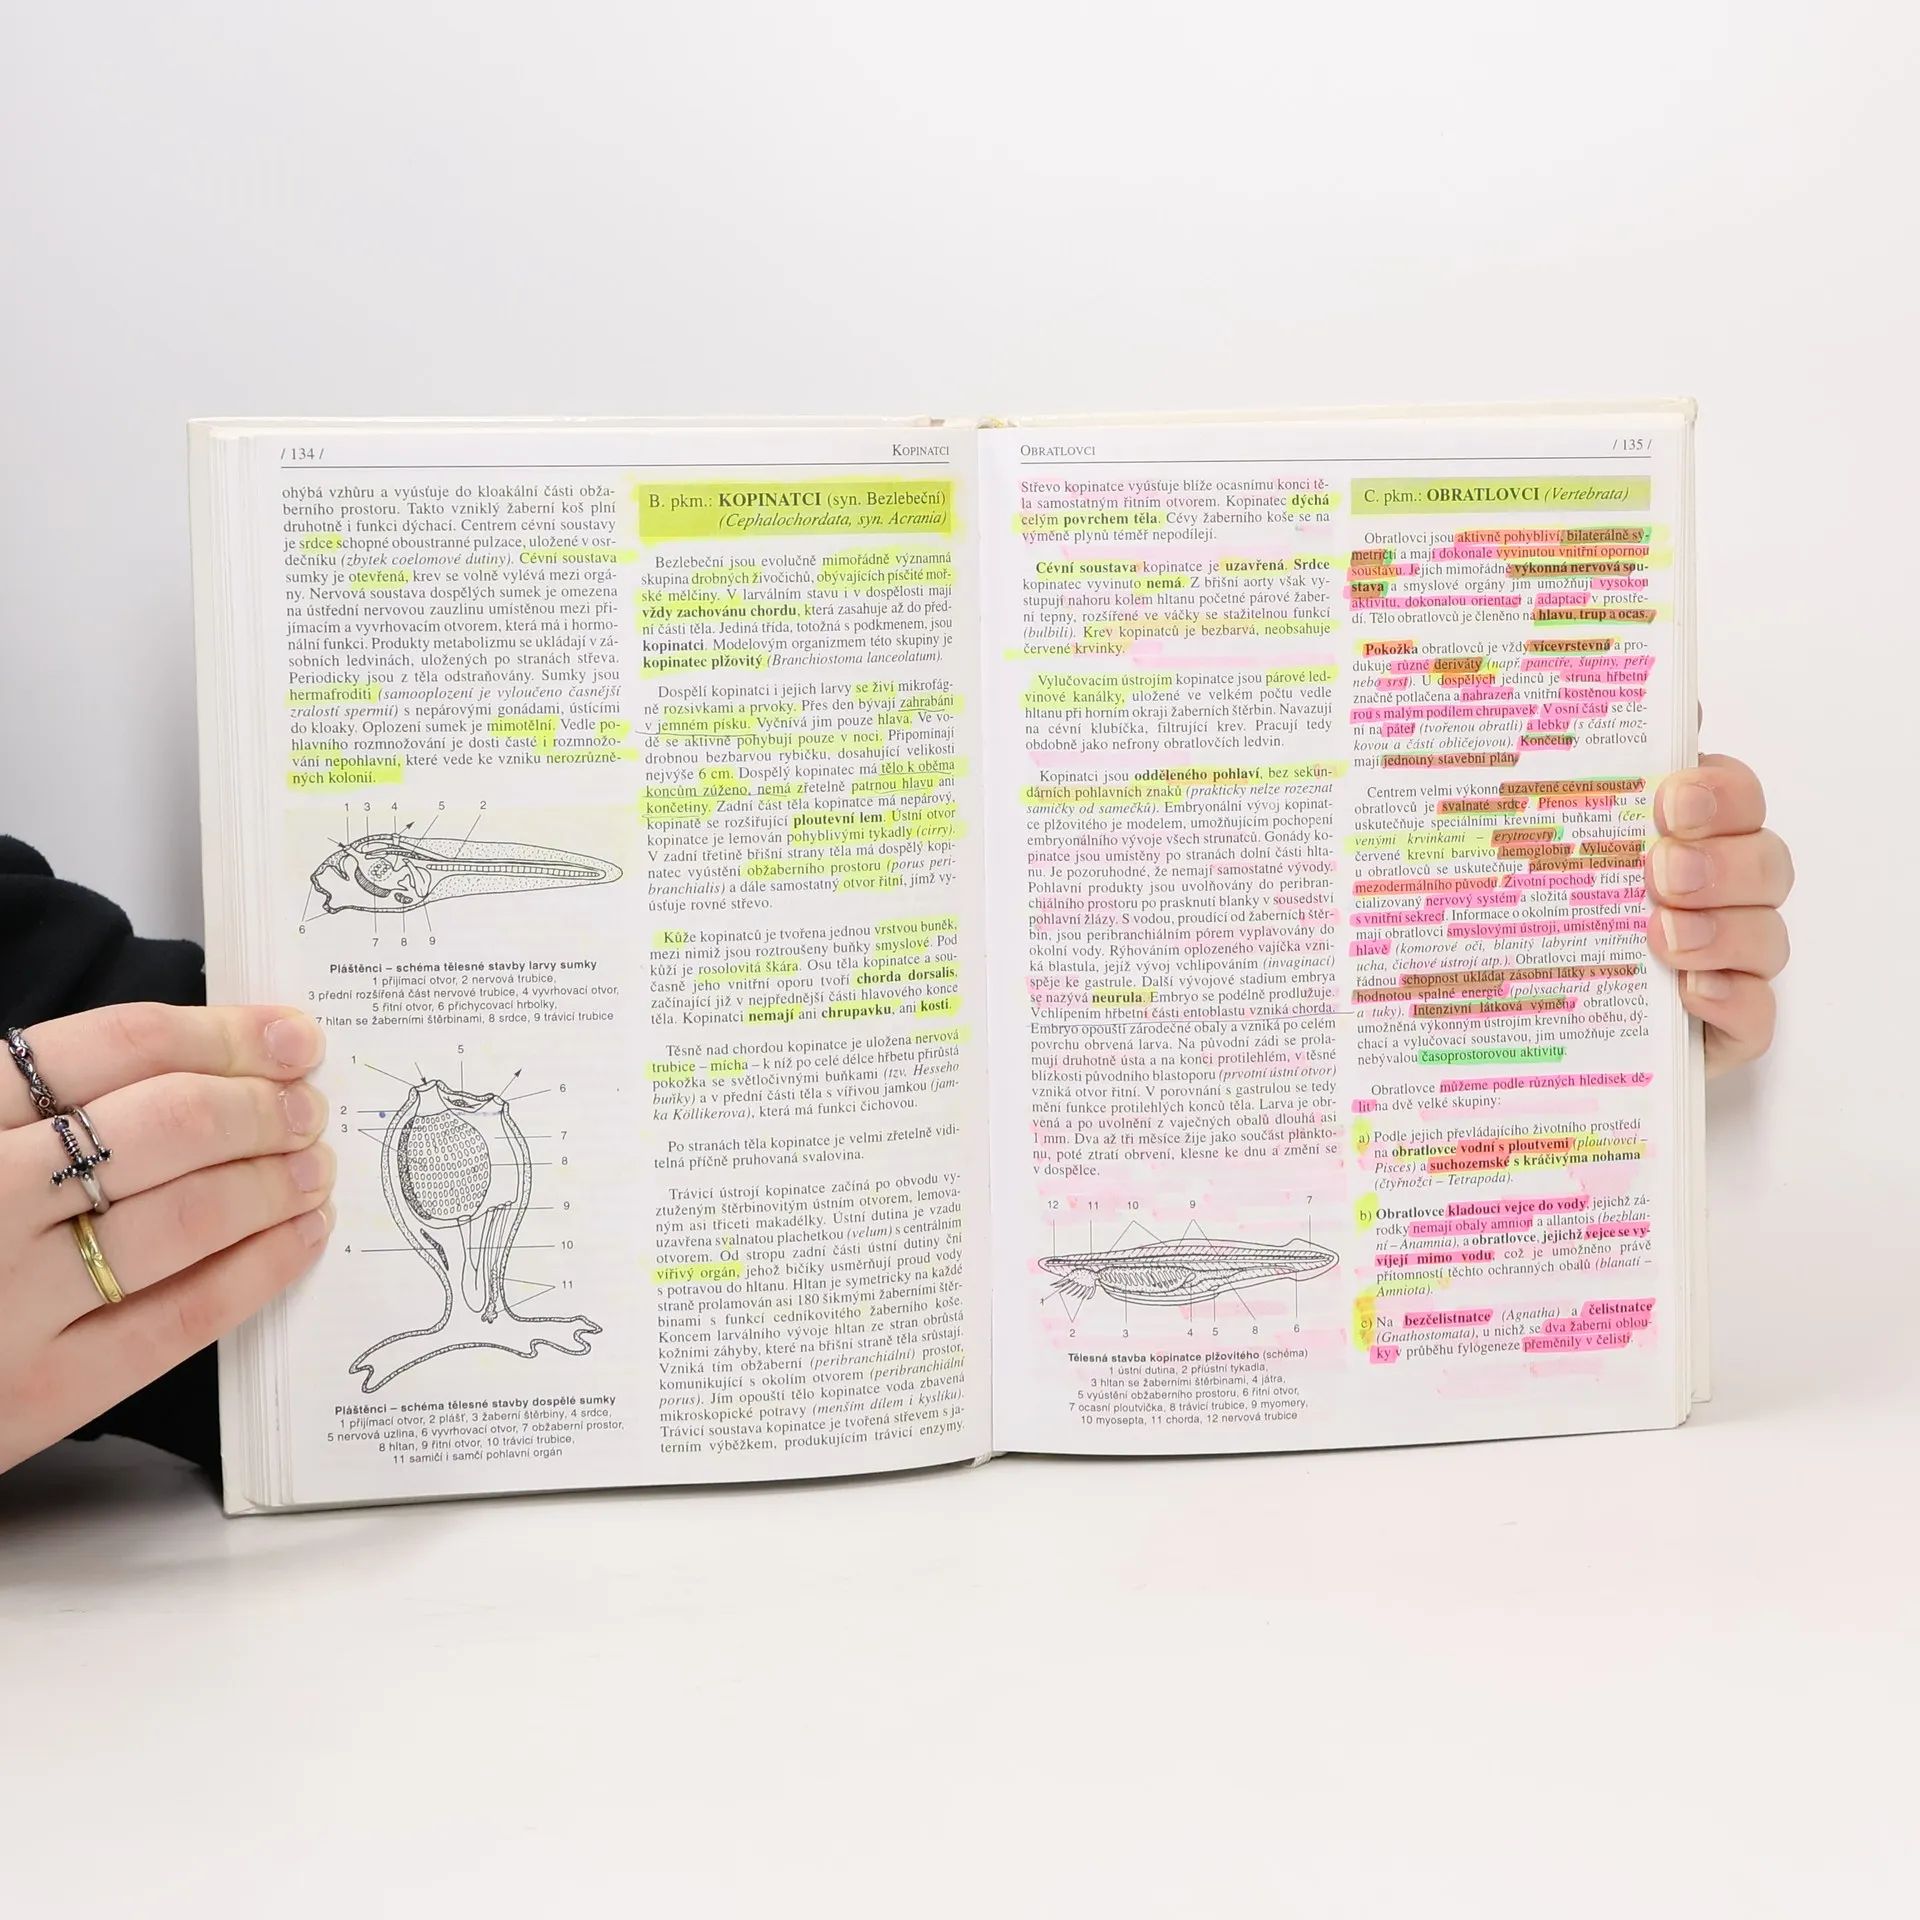 / 134 /
KOPINATCI
ohýbá vzhůru a vyúsťuje do kloakální části obža-
berního prostoru. Takto vzniklý žaberní koš plní
druhotně i funkci dýchací. Centrem cévní soustavy
je srdce schopné oboustranné pulzace, uložené v osr-
dečníku (zbytek coelomové dutiny). Cévní soustava
sumky je otevřená, krev se volně vylévá mezi orgá-
ny. Nervová soustava dospělých sumek je omezena
na ústřední nervovou zauzlinu umístěnou mezi při-
jímacím a vyvrhovacím otvorem, která má i hormo-
nální funkci. Produkty metabolizmu se ukládají v zá-
sobních ledvinách, uložených po stranách střeva.
Periodicky jsou z těla odstraňovány. Sumky jsou
hermafroditi (samooplození je vyloučeno časnější
zralostí spermií) s nepárovými gonádami, ústícími
do kloaky. Oplození sumek je mimotělní. Vedle po-
hlavního rozmnožování je dosti časté i rozmnožo-
vání nepohlavní, které vede ke vzniku nerozrůzně-
ných kolonií.
1 3 4 5 2
6 7 8 9
Pláštěnci – schéma tělesné stavby larvy sumky
1 přijímací otvor, 2 nervová trubice,
3 přední rozšířená část nervové trubice, 4 vyvrhovací otvor,
5 řitní otvor, 6 přichycovací hrbolky,
7 hltan se žaberními štěrbinami, 8 srdce, 9 trávicí trubice
1 5
6
2
3
7
8
9
4
10
11
Pláštěnci – schéma tělesné stavby dospělé sumky
1 přijímací otvor, 2 plášť, 3 žaberní štěrbiny, 4 srdce,
5 nervová uzlina, 6 vyvrhovací otvor, 7 obžaberní prostor,
8 hltan, 9 řitní otvor, 10 trávicí trubice,
11 samičí i samčí pohlavní orgán
B. pkm.: KOPINATCI (syn. Bezlebeční)
(Cephalochordata, syn. Acrania)
Bezlebeční jsou evolučně mimořádně významná
skupina drobných živočichů, obývajících písčité moř-
ské mělčiny. V larválním stavu i v dospělosti mají
vždy zachovánu chordu, která zasahuje až do před-
ní části těla. Jediná třída, totožná s podkmenem, jsou
kopinatci. Modelovým organizmem této skupiny je
kopinatec plžovitý (Branchiostoma lanceolatum).
Dospělí kopinatci i jejich larvy se živí mikrofág-
ně rozsivkami a prvoky. Přes den bývají zahrabáni
v jemném písku. Vyčnívá jim pouze hlava. Ve vo-
dě se aktivně pohybují pouze v noci. Připomínají
drobnou bezbarvou rybičku, dosahující velikosti
nejvýše 6 cm. Dospělý kopinatec má tělo k oběma
koncům zúženo, nemá zřetelně patrnou hlavu ani
končetiny. Zadní část těla kopinatce má nepárový,
kopinatě se rozšiřující ploutevní lem. Ústní otvor
kopinatce je lemován pohyblivými tykadly (cirry).
V zadní třetině břišní strany těla má dospělý kopi-
natec vyústění obžaberního prostoru (porus peri-
branchialis) a dále samostatný otvor řitní, jímž vy-
úsťuje rovné střevo.
Kůže kopinatců je tvořena jednou vrstvou buněk,
mezi nimiž jsou roztroušeny buňky smyslové. Pod
kůží je rosolovitá škára. Osu těla kopinatce a sou-
časně jeho vnitřní oporu tvoří chorda dorsalis,
začínající již v nejpřednější části hlavového konce
těla. Kopinatci nemají ani chrupavku, ani kosti.
Těsně nad chordou kopinatce je uložena nervová
trubice – mícha – k níž po celé délce hřbetu přirůstá
pokožka se světločivnými buňkami (tzv. Hesseho
buňky) a v přední části těla s vířivou jamkou (jam-
ka Köllikerova), která má funkci čichovou.
Po stranách těla kopinatce je velmi zřetelně vidi-
telná příčně pruhovaná svalovina.
Trávicí ústrojí kopinatce začíná po obvodu vy-
ztuženým štěrbinovitým ústním otvorem, lemova-
ným asi třiceti makadélky. Ústní dutina je vzadu
uzavřena svalnatou plachetkou (velum) s centrálním
otvorem. Od stropu zadní části ústní dutiny ční
vířivý orgán, jehož bičíky usměrňují proud vody
s potravou do hltanu. Hltan je symetricky na každé
straně prolamován asi 180 šikmými žaberními štěr-
binami s funkcí cedníkovitého žaberního koše.
Koncem larválního vývoje hltan ze stran obrůstá
kožními záhyby, které na břišní straně těla srůstají.
Vzniká tím obžaberní (peribranchiální) prostor,
komunikující s okolím otvorem (peribranchiální
porus). Jím opouští tělo kopinatce voda zbavená
mikroskopické potravy (menším dílem i kyslíku).
Trávicí soustava kopinatce je tvořená střevem s ja-
terním výběžkem, produkujícím trávicí enzymy.
OBRATLOVCI
/ 135 /
Střevo kopinatce vyúsťuje blíže ocasnímu konci tě-
la samostatným řitním otvorem. Kopinatec dýchá
celým povrchem těla. Cévy žaberního koše se na
výměně plynů téměř nepodílejí.
Cévní soustava kopinatce je uzavřená. Srdce
kopinatec vyvinuto nemá. Z břišní aorty však vy-
stupují nahoru kolem hltanu početné párové žaber-
ní tepny, rozšířené ve váčky se stažitelnou funkcí
(bulbili). Krev kopinatců je bezbarvá, neobsahuje
červené krvinky.
Vylučovacím ústrojím kopinatce jsou párové led-
vinové kanálky, uložené ve velkém počtu vedle
hltanu při horním okraji žaberních štěrbin. Navazují
na cévní klubíčka, filtrující krev. Pracují tedy
obdobně jako nefrony obratlovčích ledvin.
Kopinatci jsou odděleného pohlaví, bez sekun-
dárních pohlavních znaků (prakticky nelze rozeznat
samičky od samečků). Embryonální vývoj kopinat-
ce plžovitého je modelem, umožňujícím pochopení
embryonálního vývoje všech strunatců. Gonády ko-
pinatce jsou umístěny po stranách dolní části hlta-
nu. Je pozoruhodné, že nemají samostatné vývody.
Pohlavní produkty jsou uvolňovány do peribran-
chiálního prostoru po prasknutí blanky v sousedství
pohlavní žlázy. S vodou, proudící od žaberních štěr-
bin, jsou peribranchiálním pórem vyplavovány do
okolní vody. Rýhováním oplozeného vajíčka vzni-
ká blastula, jejíž vývoj vchlipováním (invaginací)
spěje ke gastrule. Další vývojové stadium embrya
se nazývá neurula. Embryo se podélně prodlužuje.
Vchlípením hřbetní části entoblastu vzniká chorda.
Embryo opouští zárodečné obaly a vzniká po celém
povrchu obrvená larva. Na původní zádi se prola-
mují druhotně ústa a na konci protilehlém, v těsné
blízkosti původního blastoporu (prvotní ústní otvor)
vzniká otvor řitní. V porovnání s gastrulou se tedy
mění funkce protilehlých konců těla. Larva je obr-
vená a po uvolnění z vaječných obalů dlouhá asi
1 mm. Dva až tři měsíce žije jako součást plankto-
nu, poté ztratí obrvení, klesne ke dnu a změní se
v dospělce.
12 11 10 9 7
1 2 3 4 5 8 6
Tělesná stavba kopinatce plžovitého (schéma)
1 ústní dutina, 2 příústní tykadla,
3 hltan se žaberními štěrbinami, 4 játra,
5 vyústění obžaberního prostoru, 6 řitní otvor,
7 ocasní ploutvička, 8 trávicí trubice, 9 myomery,
10 myosepta, 11 chorda, 12 nervová trubice
C. pkm.: OBRATLOVCI (Vertebrata)
Obratlovci jsou aktivně pohybliví, bilaterálně sy-
metričtí a mají dokonale vyvinutou vnitřní opornou
soustavu. Jejich mimořádně výkonná nervová sou-
stava a smyslové orgány jim umožňují vysokou
aktivitu, dokonalou orientaci a adaptaci v prostře-
dí. Tělo obratlovců je členěno na hlavu, trup a ocas.
Pokožka obratlovců je vždy vícevrstevná a pro-
dukuje různé deriváty (např. pancíře, šupiny, peří
nebo srst). U dospělých jedinců je struna hřbetní
značně potlačena a nahrazena vnitřní kostěnou kost-
rou s malým podílem chrupavek. V osní části se čle-
ní na páteř (tvořenou obratli) a lebku (s částí moz-
kovou a částí obličejovou). Končetiny obratlovců
mají jednotný stavební plán.
Centrem velmi výkonné uzavřené cévní soustavy
obratlovců je svalnaté srdce. Přenos kyslíku se
uskutečňuje speciálními krevními buňkami (čer-
venými krvinkami – erytrocyty), obsahujícími
červené krevní barvivo hemoglobin. Vylučování
u obratlovců se uskutečňuje párovými ledvinami
mezodermálního původu. Životní pochody řídí spe-
cializovaný nervový systém a složitá soustava žláz
s vnitřní sekrecí. Informace o okolním prostředí vní-
mají obratlovci smyslovými ústrojí, umístěnými na
hlavě (komorové oči, blanitý labyrint vnitřního
ucha, čichové ústrojí atp.). Obratlovci mají mimo-
řádnou schopnost ukládat zásobní látky s vysokou
hodnotou spalné energie (polysacharid glykogen
a tuky). Intenzivní látková výměna obratlovců,
umožněná výkonným ústrojím krevního oběhu, dý-
chací a vylučovací soustavou, jim umožňuje zcela
nebývalou časoprostorovou aktivitu.
Obratlovce můžeme podle různých hledisek dě-
lit na dvě velké skupiny:
a) Podle jejich převládajícího životního prostředí
na obratlovce vodní s ploutvemi (ploutvovci –
Pisces) a suchozemské s kráčivýma nohama
(čtyřnožci – Tetrapoda).
b) Obratlovce kladoucí vejce do vody, jejichž zá-
rodky nemají obaly amnion a allantois (bezblan-
ní – Anamnia), a obratlovce, jejichž vejce se vy-
víjejí mimo vodu, což je umožněno právě
přítomností těchto ochranných obalů (blanatí –
Amniota).
c) Na bezčelistnatce (Agnatha) a čelistnatce
(Gnathostomata), u nichž se dva žaberní oblou-
ky v průběhu fylogeneze přeměnily v čelisti.